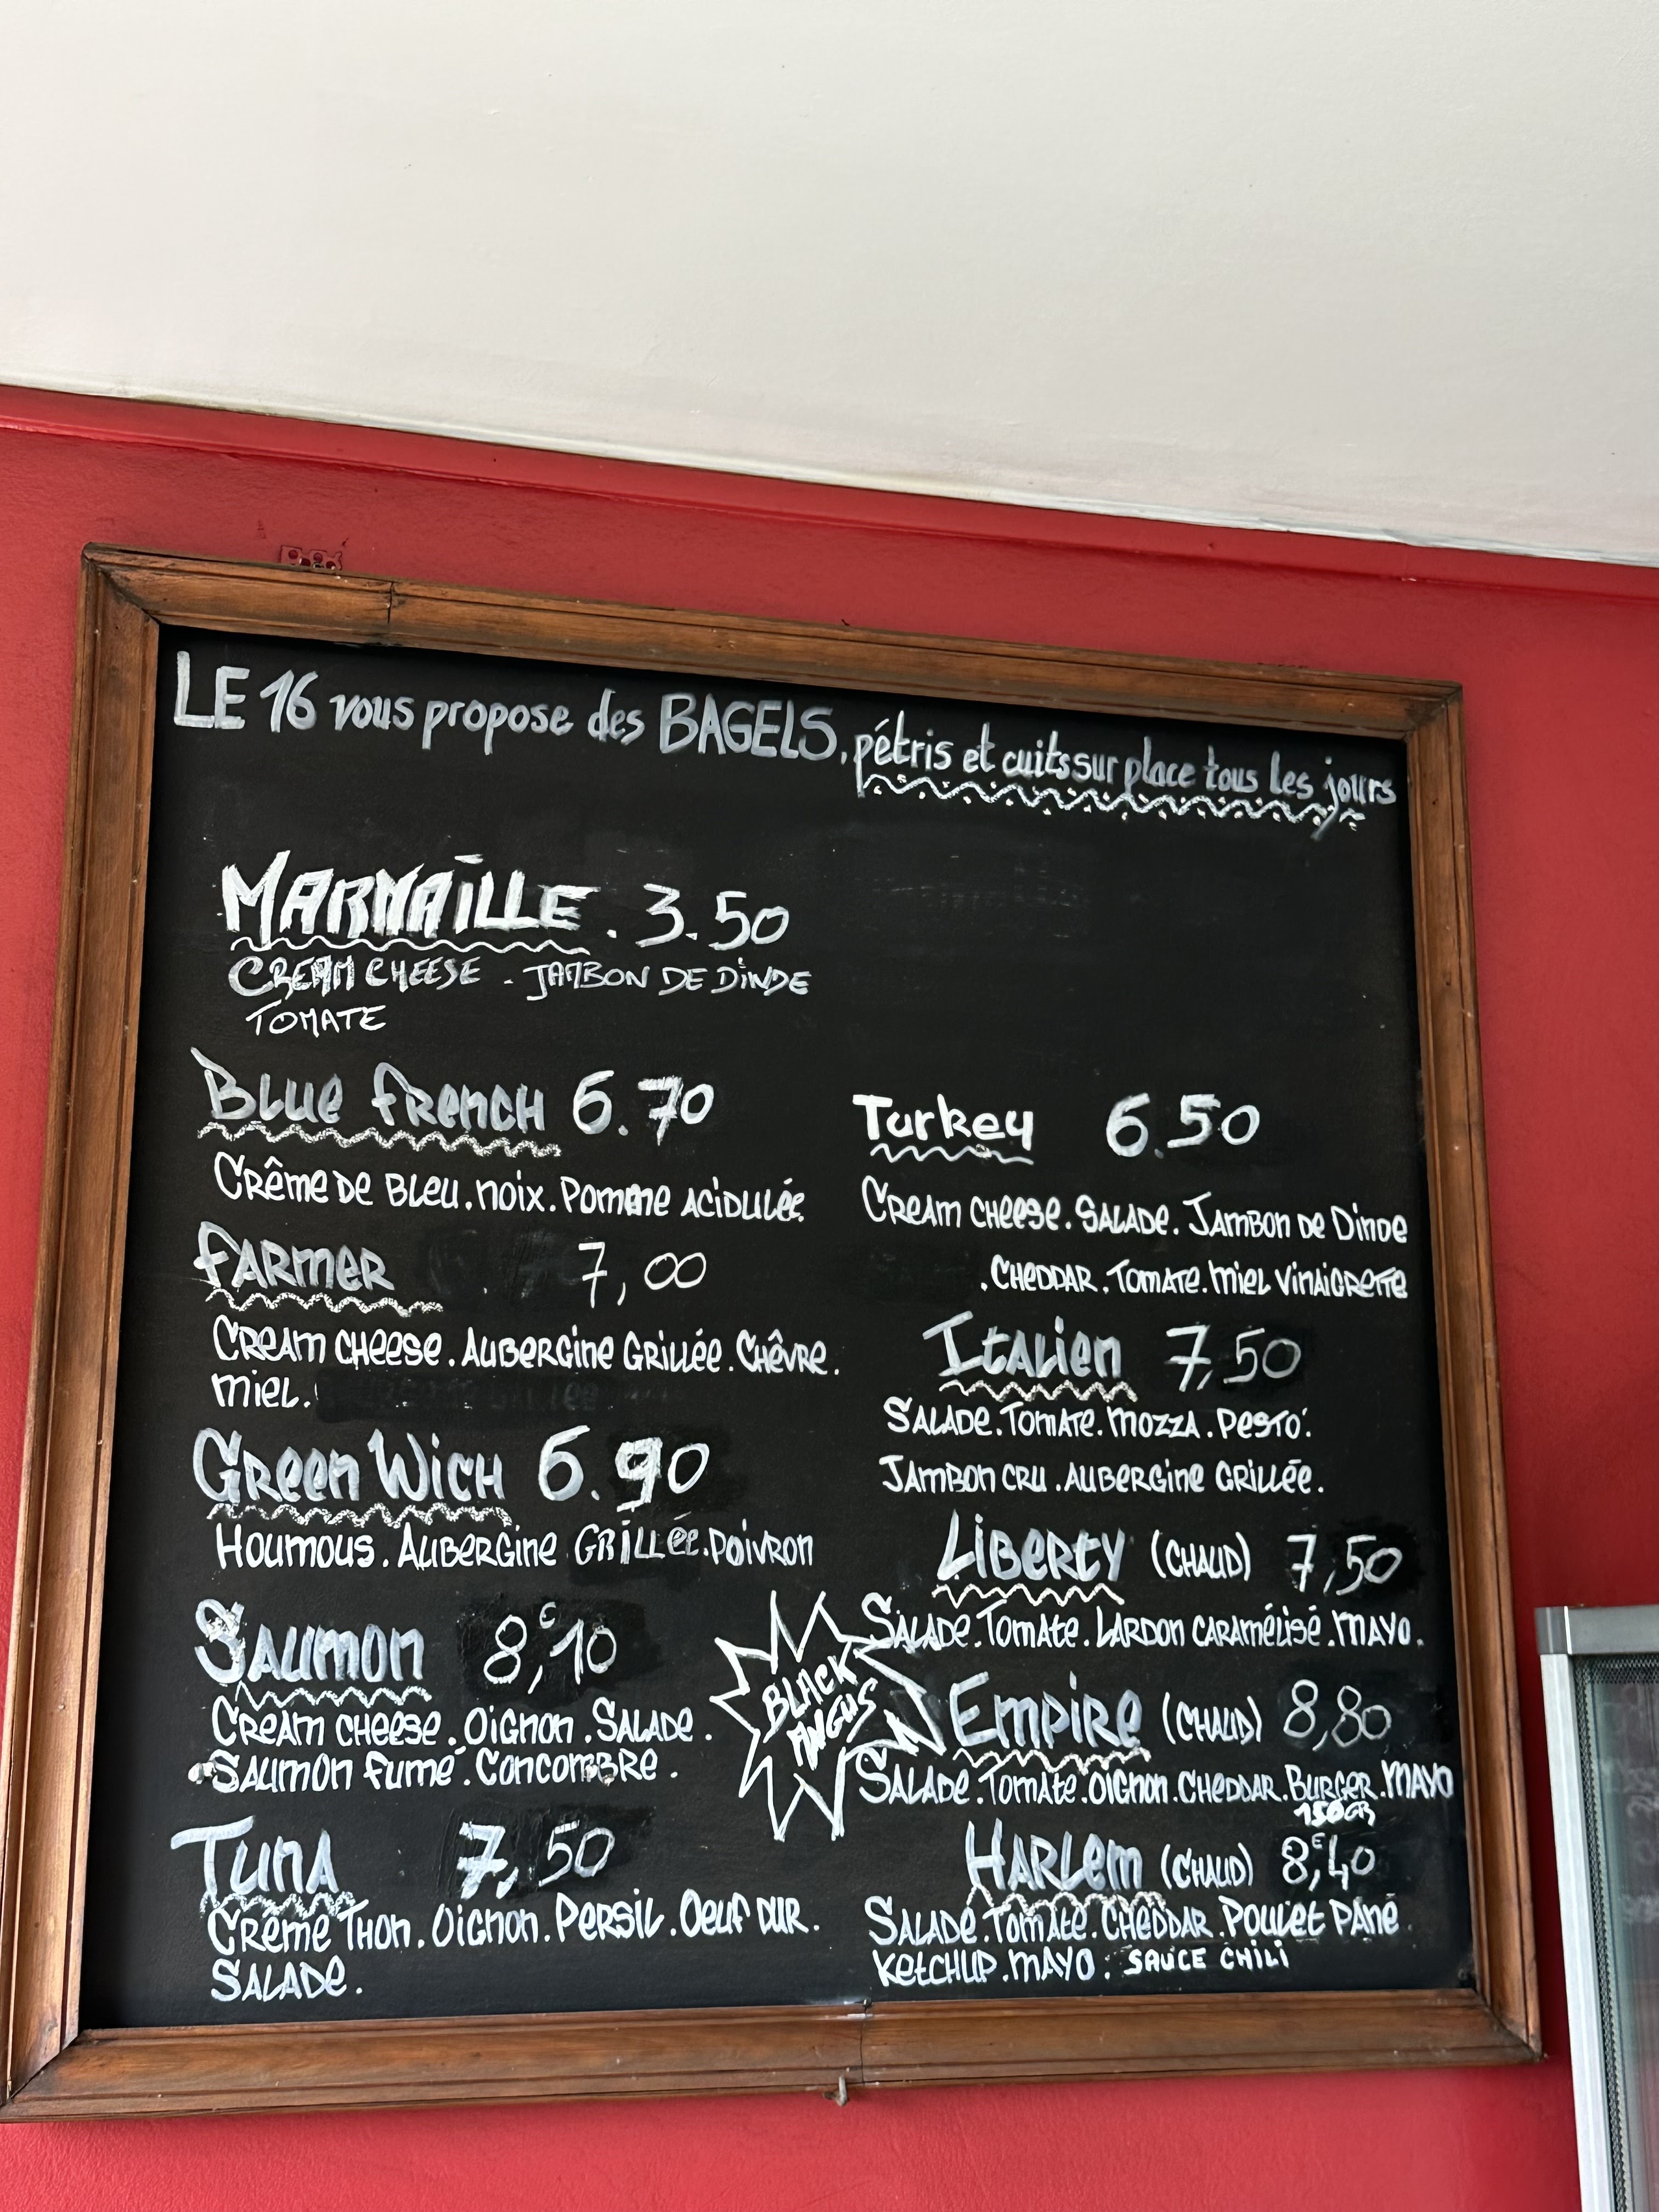 LE 16 vous propose des BAGELS, pétris et cuits sur place tous les jours
MARMAILLE . 3.50
CREAM CHEESE . JAMBON DE DINDE
TOMATE
Blue French 6.70
Crême de Bleu . noix . Pomme acidulée
Farmer 7,00
Cream cheese . Aubergine Grillée . Chêvre .
miel .
Green Wich 6.90
Houmous . Aubergine GRILLée . Poivron
Saumon 8,€10
Cream cheese . Oignon . Salade .
Saumon fumé . Concombre .
Tuna 7,50
Crême Thon . Oignon . Persil . Oeuf dur .
Salade .
Turkey 6.50
Cream cheese . Salade . Jambon de Dinde
. Cheddar . Tomate . miel vinaigrette
Italien 7,50
Salade . Tomate . mozza . Pesto .
Jambon cru . Aubergine Grillée .
Liberty (chaud) 7,50
Salade . Tomate . Lardon caramélisé . mayo .
BLACK
ANGUS
Empire (chaud) 8,80
Salade . Tomate . oignon . cheddar . Burger . mayo
150GR
Harlem (chaud) 8,€40
Salade . Tomate . Cheddar . Poulet pané .
Ketchup . mayo . SAUCE CHILI